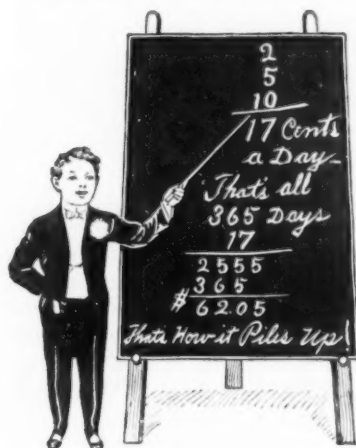 2
5
10
17 Cents
a Day—
That's all
365 Days
17
2555
365
$62.05
That's How it Piles Up!